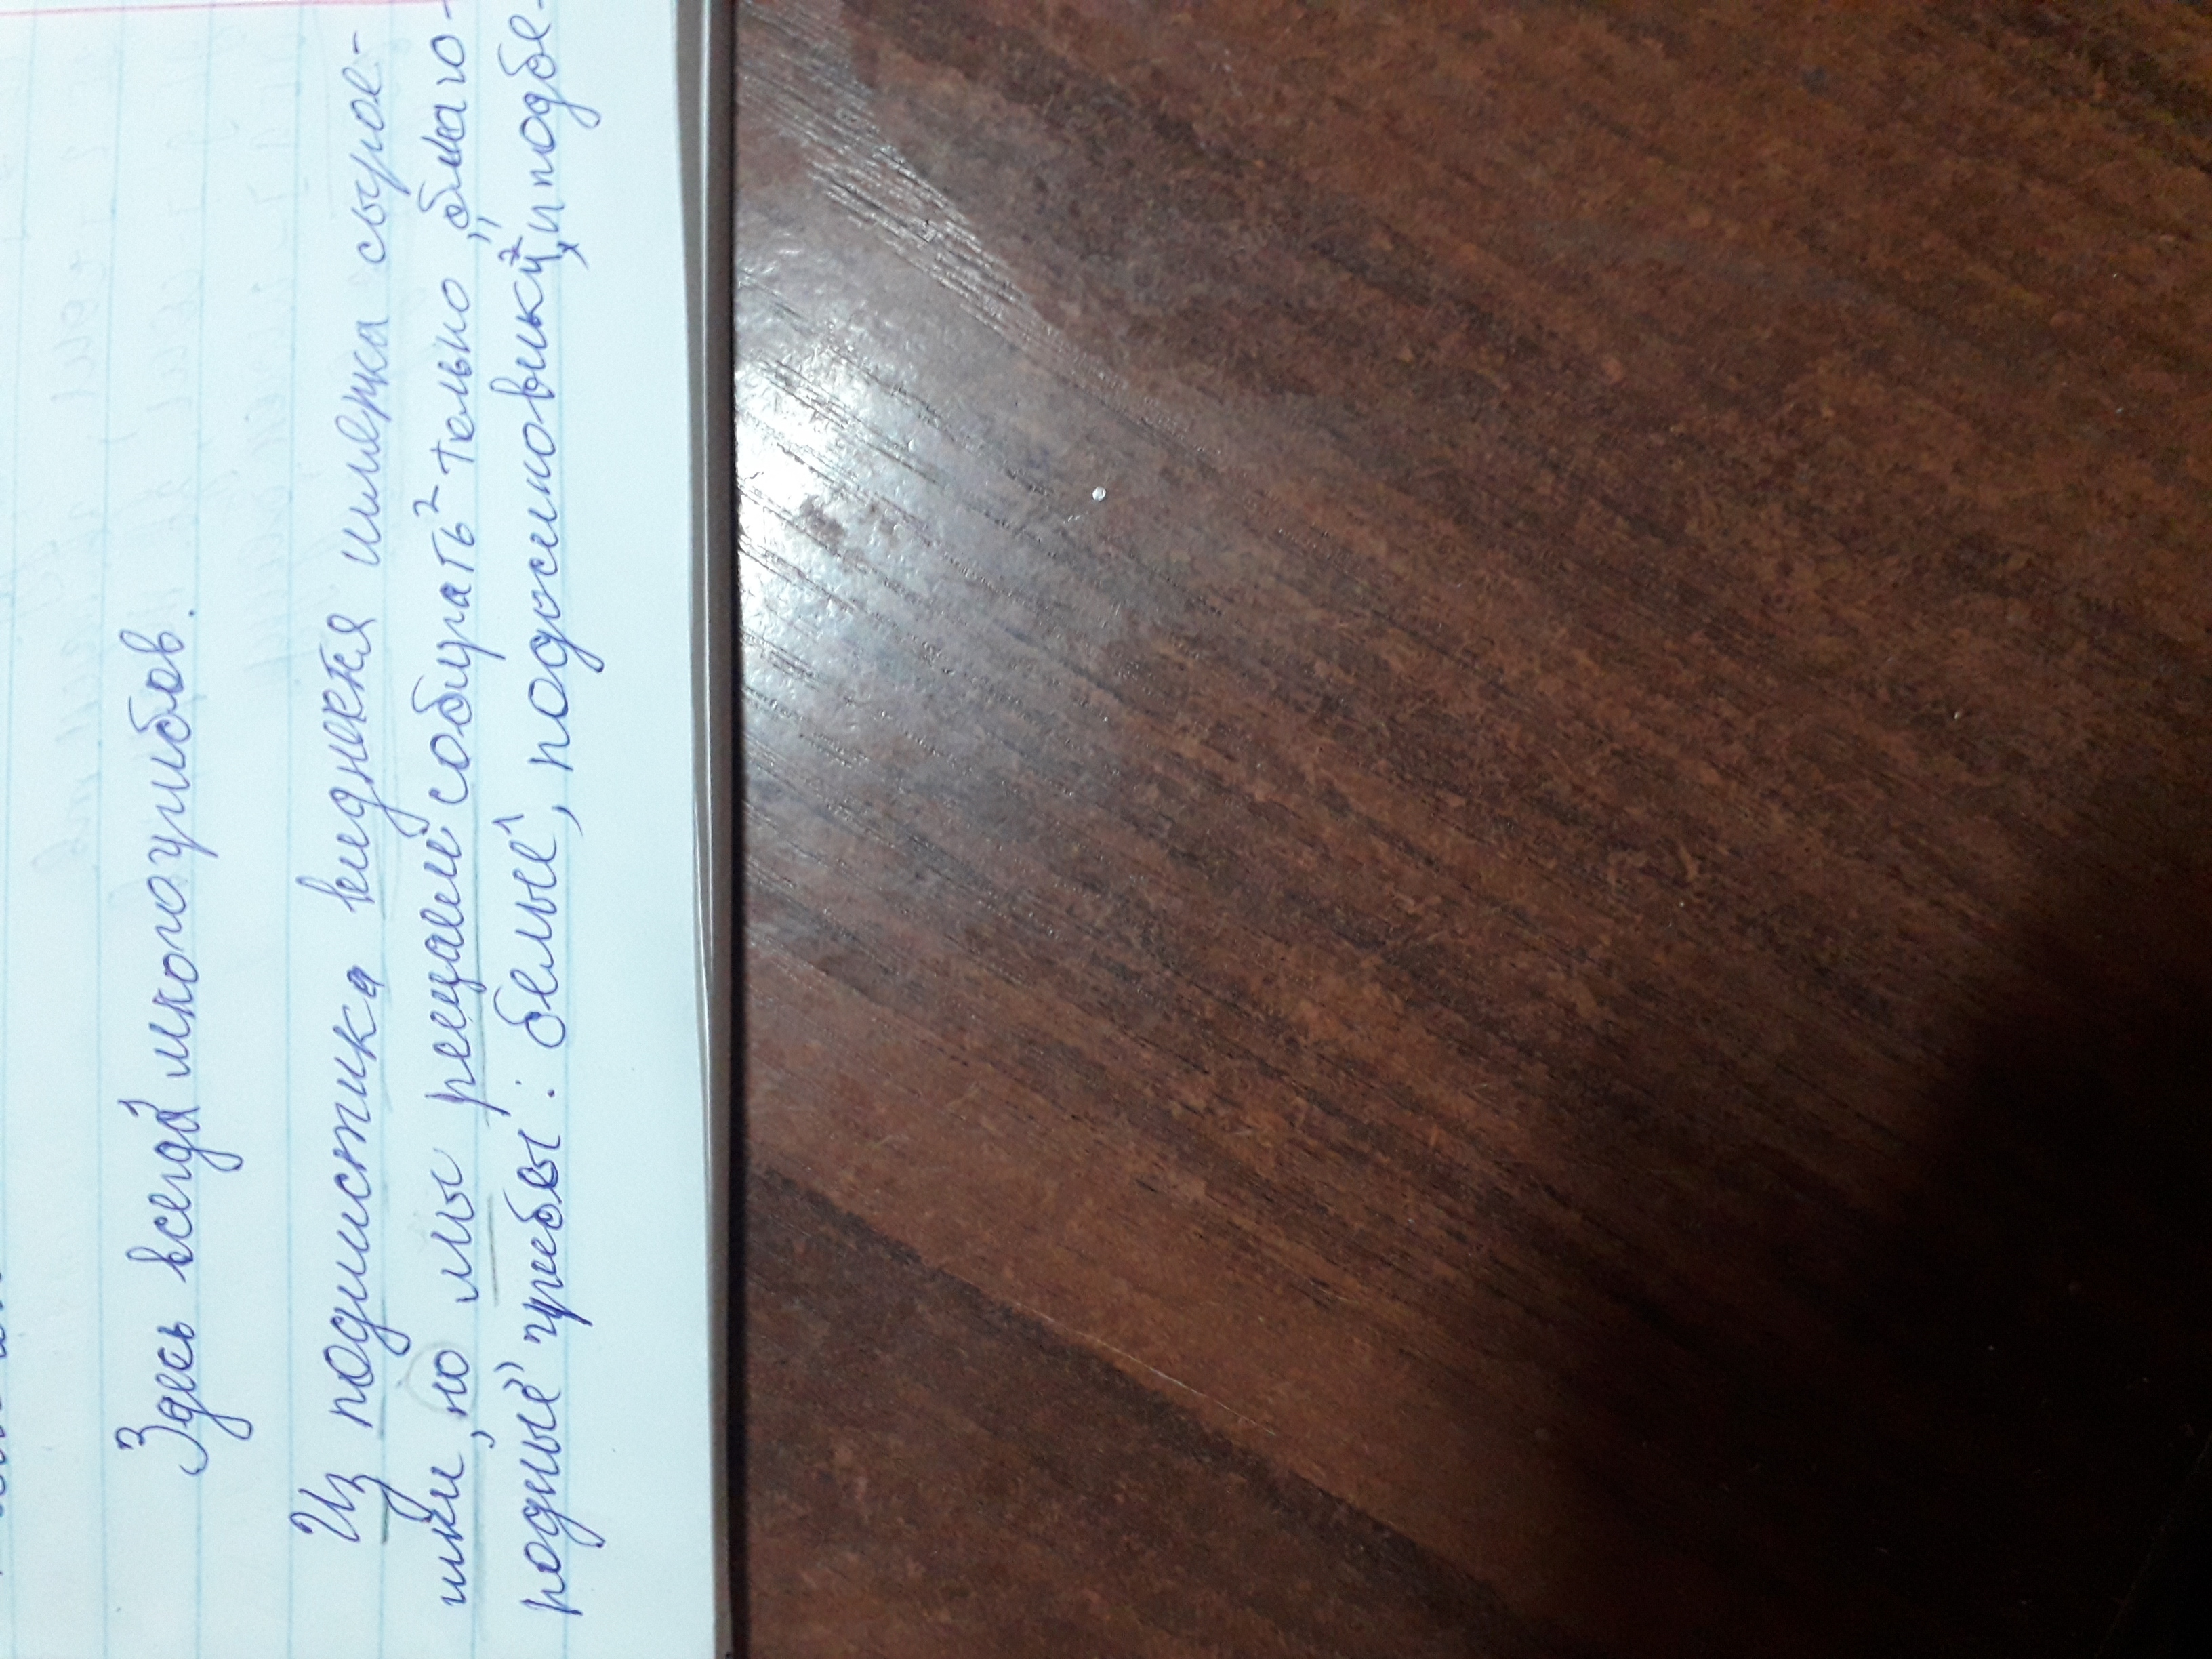 Здесь всегда¹ много грибов.
Из подлистика виднеется шляпка сырое-
шки, но мы решаем¹ собирать² только „благо-
родные" грибы: белые¹, подосиновики², и подбе-